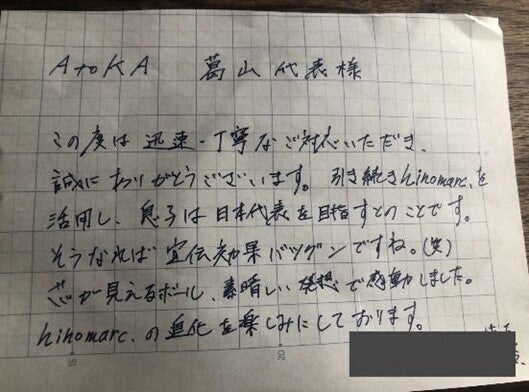 AtoKA 葛山代表様
この度は迅速・丁寧なご対応いただき、
誠にありがとうございます。引き続きhinomarc.を
活用し、息子は日本代表を目指すとのことです。
そうなれば宣伝効果バツグンですね。(笑)
芯が見えるボール、素晴しい発想で感動しました。
hinomarc.の進化を楽しみにしております。
15 20